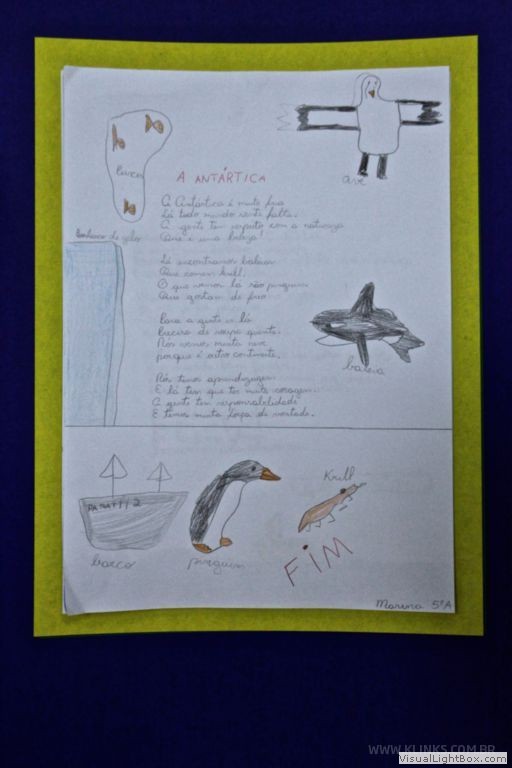 ave
A ANTÁRTICA
A Antártica é muito fria
Lá todo mundo sente falta.
A gente tem respeito com a natureza
Que é uma beleza!
Lá encontramos baleias
Que comem krill.
O que vemos lá são pinguins
Que gostam de frio.
Para a gente ir lá
Precisa de roupa quente.
Nós vemos muita neve
porque é outro continente.
Nós temos aprendizagem
E lá tem que ter muita coragem.
A gente tem responsabilidade
E temos muita força de vontade.
baleia
barco
pinguim
Krill
FIM
Marina 5ºA
WWW.KLINKS.COM.BR
VisualLightBox.com